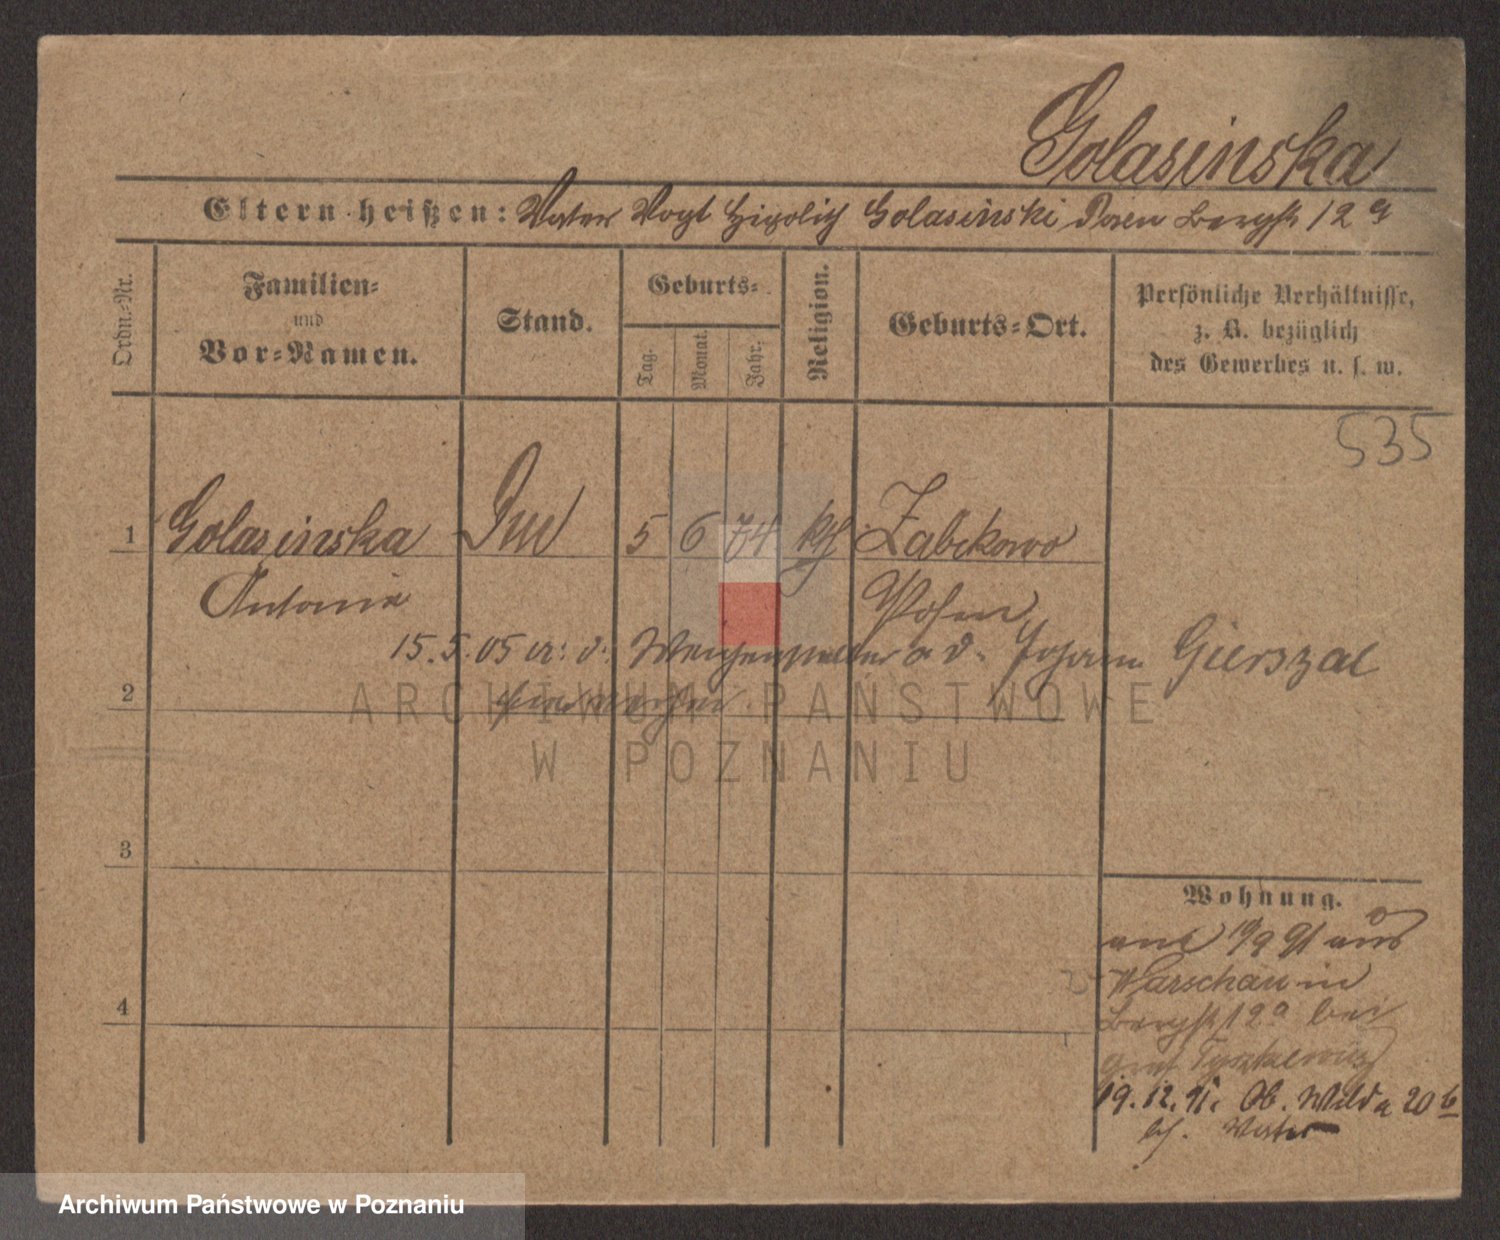 Golasinska
Eltern heißen: Vater Vogt Golasinski Posen Bergstr 12a
Ordn.-Nr.
Familien-
und
Vor-Namen.
Stand.
Geburts-
Tag.
Monat.
Jahr.
Religion.
Geburts-Ort.
Persönliche Verhältnisse,
z. B. bezüglich
des Gewerbes u. s. w.
535
1 Golasinska 5 6 74 kth Zabikowo
Antonie Posen
15.5.05 Johann Gierszal
2
3
4
Wohnung.
9/9 91 aus
Warschau in
Bergstr 12a bei
Graf Tyszkiewicz
19.12.91. Ob. Wilda 20 b
bei Vater
ARCHIWUM PAŃSTWOWE
W POZNANIU
Archiwum Państwowe w Poznaniu